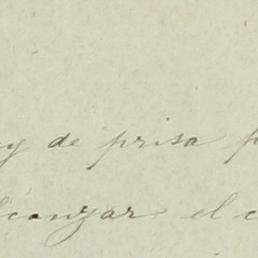 y de prisa p
lcanzar el c